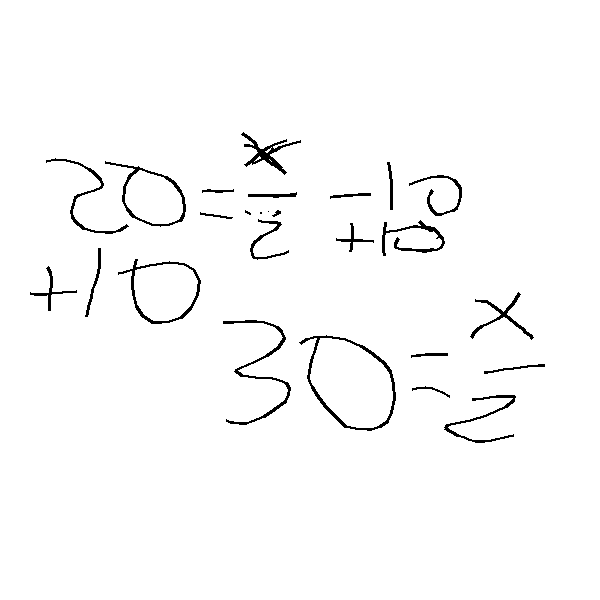 20 = x/2 - 10
+10 +10
30 = x/2